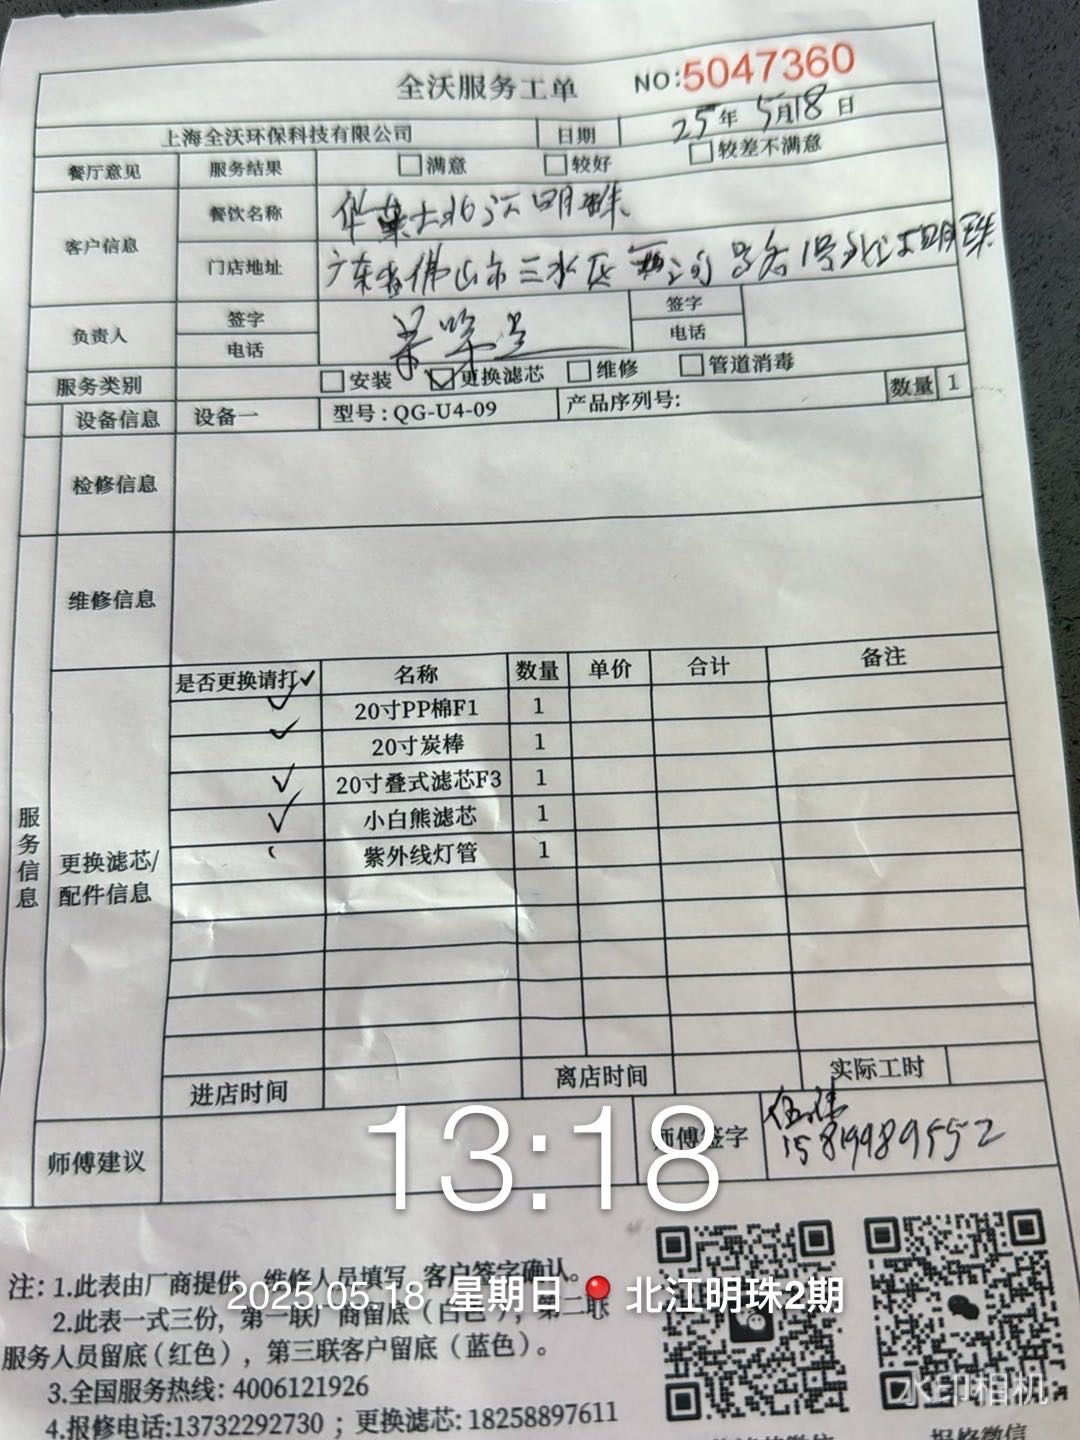 全沃服务工单 NO:5047360
上海全沃环保科技有限公司 日期 25年5月18日
餐厅意见 服务结果 满意 较好 较差不满意
客户信息 餐饮名称 华 大北江明珠
门店地址 广东省佛山市三水区 号 1号北江明珠
负责人 签字 签字
电话 电话
服务类别 安装 ✓更换滤芯 维修 管道消毒
设备信息 设备一 型号:QG-U4-09 产品序列号: 数量 1
检修信息
维修信息
服务信息
更换滤芯/配件信息
是否更换请打✓ 名称 数量 单价 合计 备注
✓ 20寸PP棉F1 1
✓ 20寸炭棒 1
✓ 20寸叠式滤芯F3 1
✓ 小白熊滤芯 1
紫外线灯管 1
进店时间 离店时间 实际工时
师傅建议 师傅签字 伍
15819989552
13:18
注: 1.此表由厂商提供,维修人员填写,客户签字确认。
2025.05.18 星期日 北江明珠2期
2.此表一式三份,第一联厂商留底(白色),第二联
服务人员留底(红色),第三联客户留底(蓝色)。
3.全国服务热线: 4006121926
4.报修电话:13732292730 ; 更换滤芯: 18258897611
水印相机
报修微信